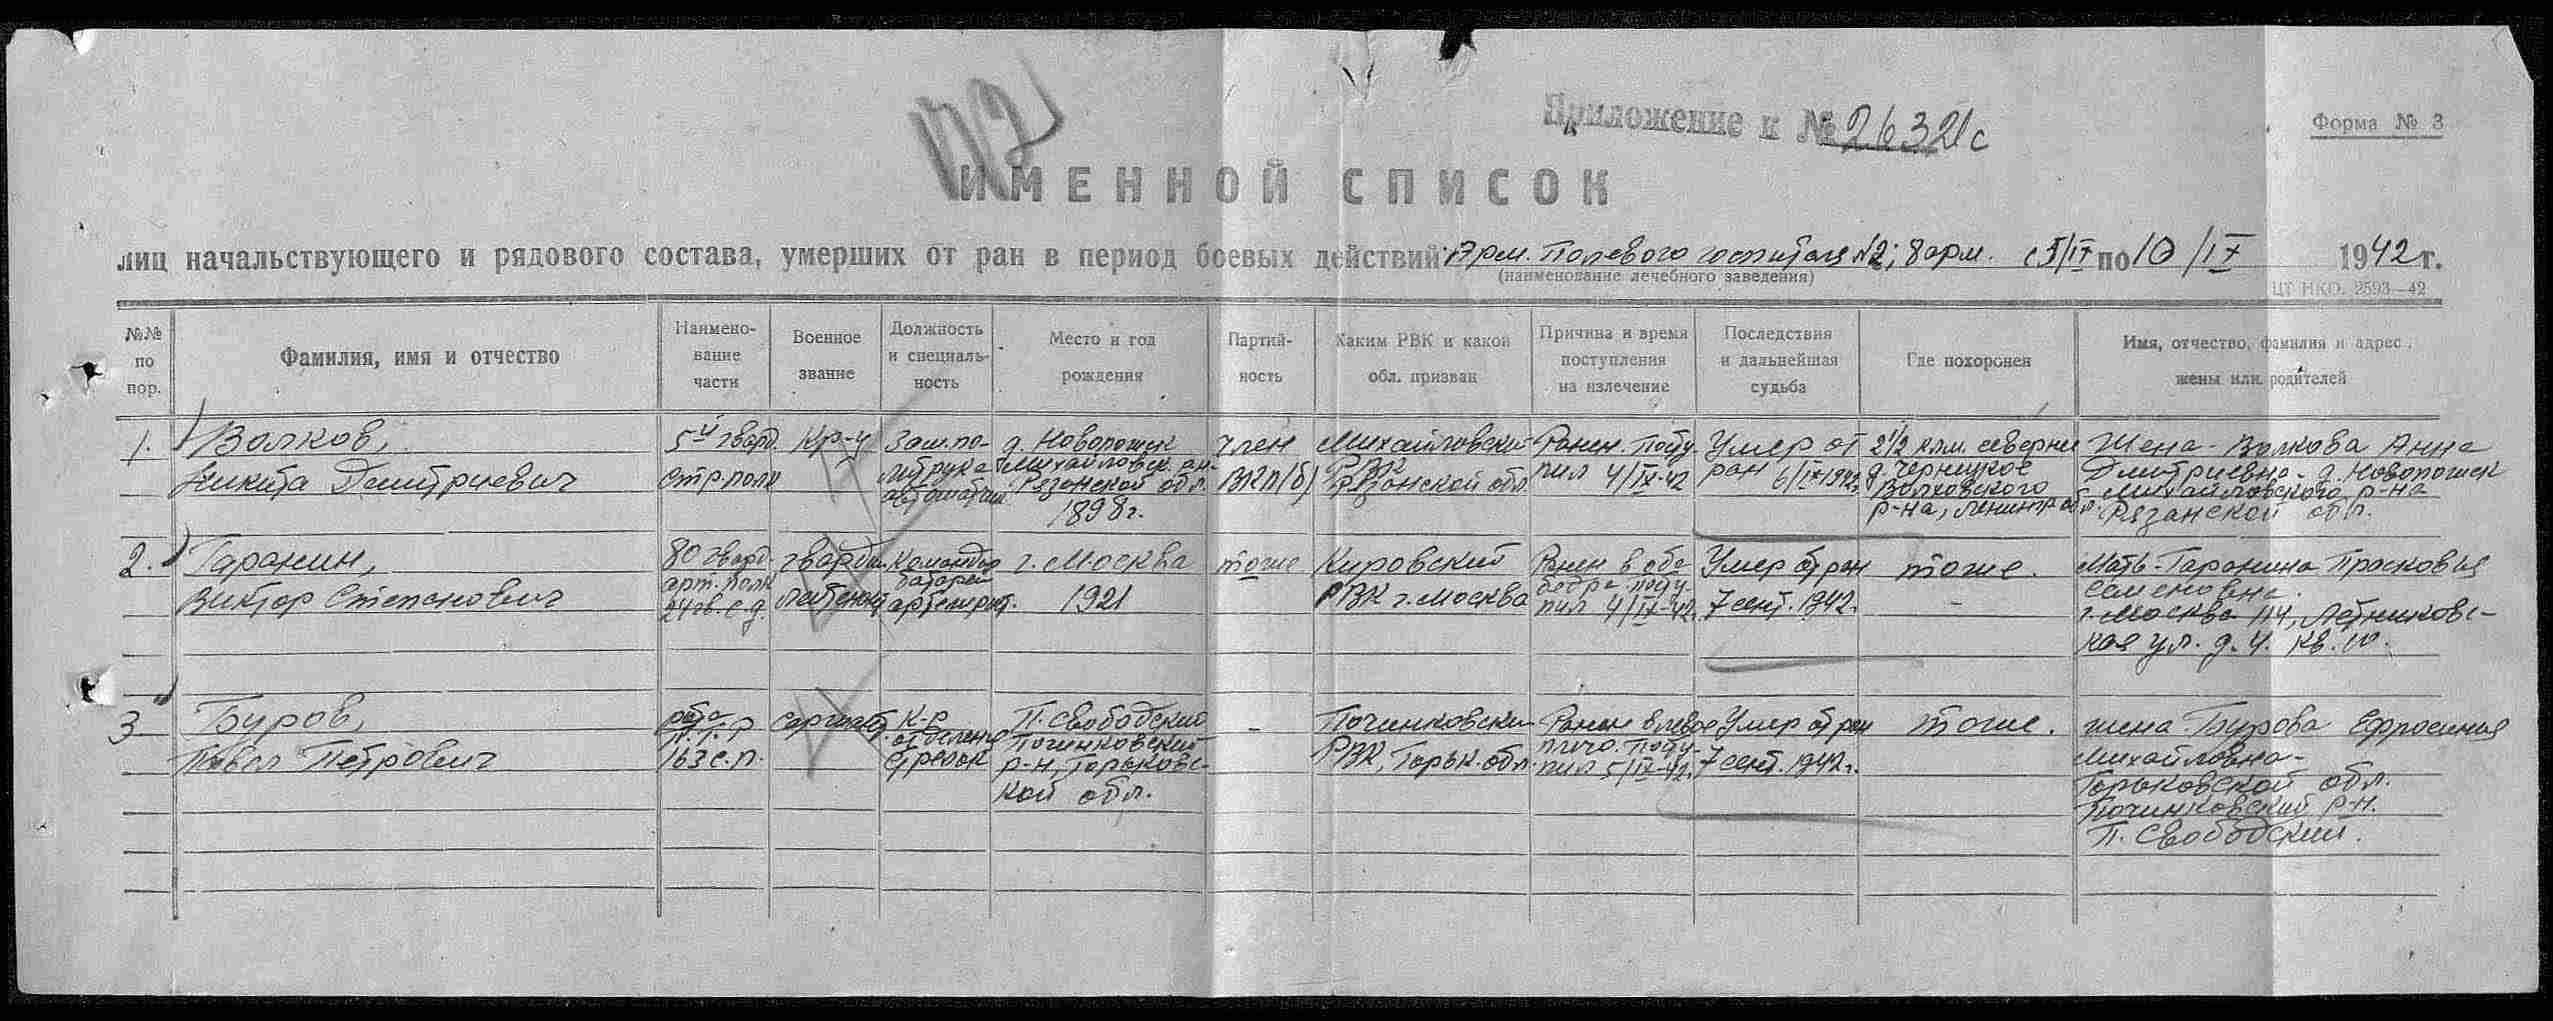 Приложение к № 26321с
Форма № 3
ИМЕННОЙ СПИСОК
лиц начальствующего и рядового состава, умерших от ран в период боевых действий: Полевого госпиталя №2; 8 арм. с 5/IX по 10/IX 1942 г.
(наименование лечебного заведения)
ЦТ НКО. 2593—42
№№ по пор.
Фамилия, имя и отчество
Наимено-
вание
части
Военное
звание
Должность
и специаль-
ность
Место и год
рождения
Партий-
ность
Каким РВК и какой
обл. призван
Причина и время
поступления
на излечение
Последствия
и дальнейшая
судьба
Где похоронен
Имя, отчество, фамилия и адрес
жены или родителей
1.
Волков,
Никита Дмитриевич
5й гвард.
стр. полк
Кр-ц
Зам. по-
литрука
д. Новопошск
Михайловск. 
Рязанской обл.
1898 г.
член
ВКП(б)
Михайловский
РВК
Рязанской обл
Ранен. Посту
пил 4/IX-42
Умер от
ран 6/IX 1942г.
2 1/2 клм. севернее
д. Чернецкое
Волховского
р-на, Ленингр обл.
Жена - Волкова Анна
Дмитриевна - д. Новопошск
Михайловского р-на
Рязанской обл.
2.
Гаранин,
Виктор Степанович
80 гвард.
арт. полк
24 гв. с.д.
гвардии
лейтенант
Командир
батареи
г. Москва
1921
тоже
Кировский
РВК г. Москва
Ранен в оба
бедра посту-
пил 4/IX-42г.
Умер от ран
7 сент. 1942г.
тоже.
Мать - Гаранина Прасковья
Семеновна.
г. Москва 114, Летниковс-
кая ул. д. 4. кв. 10.
3
Буров,
Павел Петрович
рота
П.Т.Р
163 с.п.
Сержант
К-р
отделения
Стрелок
П. Свободский
Починковский
р-н, Горьковс-
кой обл.
-
Починковский
РВК, Горьк. обл.
Ранен в левое
плечо. Посту-
пил 5/IX-42г.
Умер от ран
7 сент. 1942г.
тоже.
жена Бурова Ефросинья
Михайловна -
Горьковской обл.
Починковский р-н.
П. Свободский.